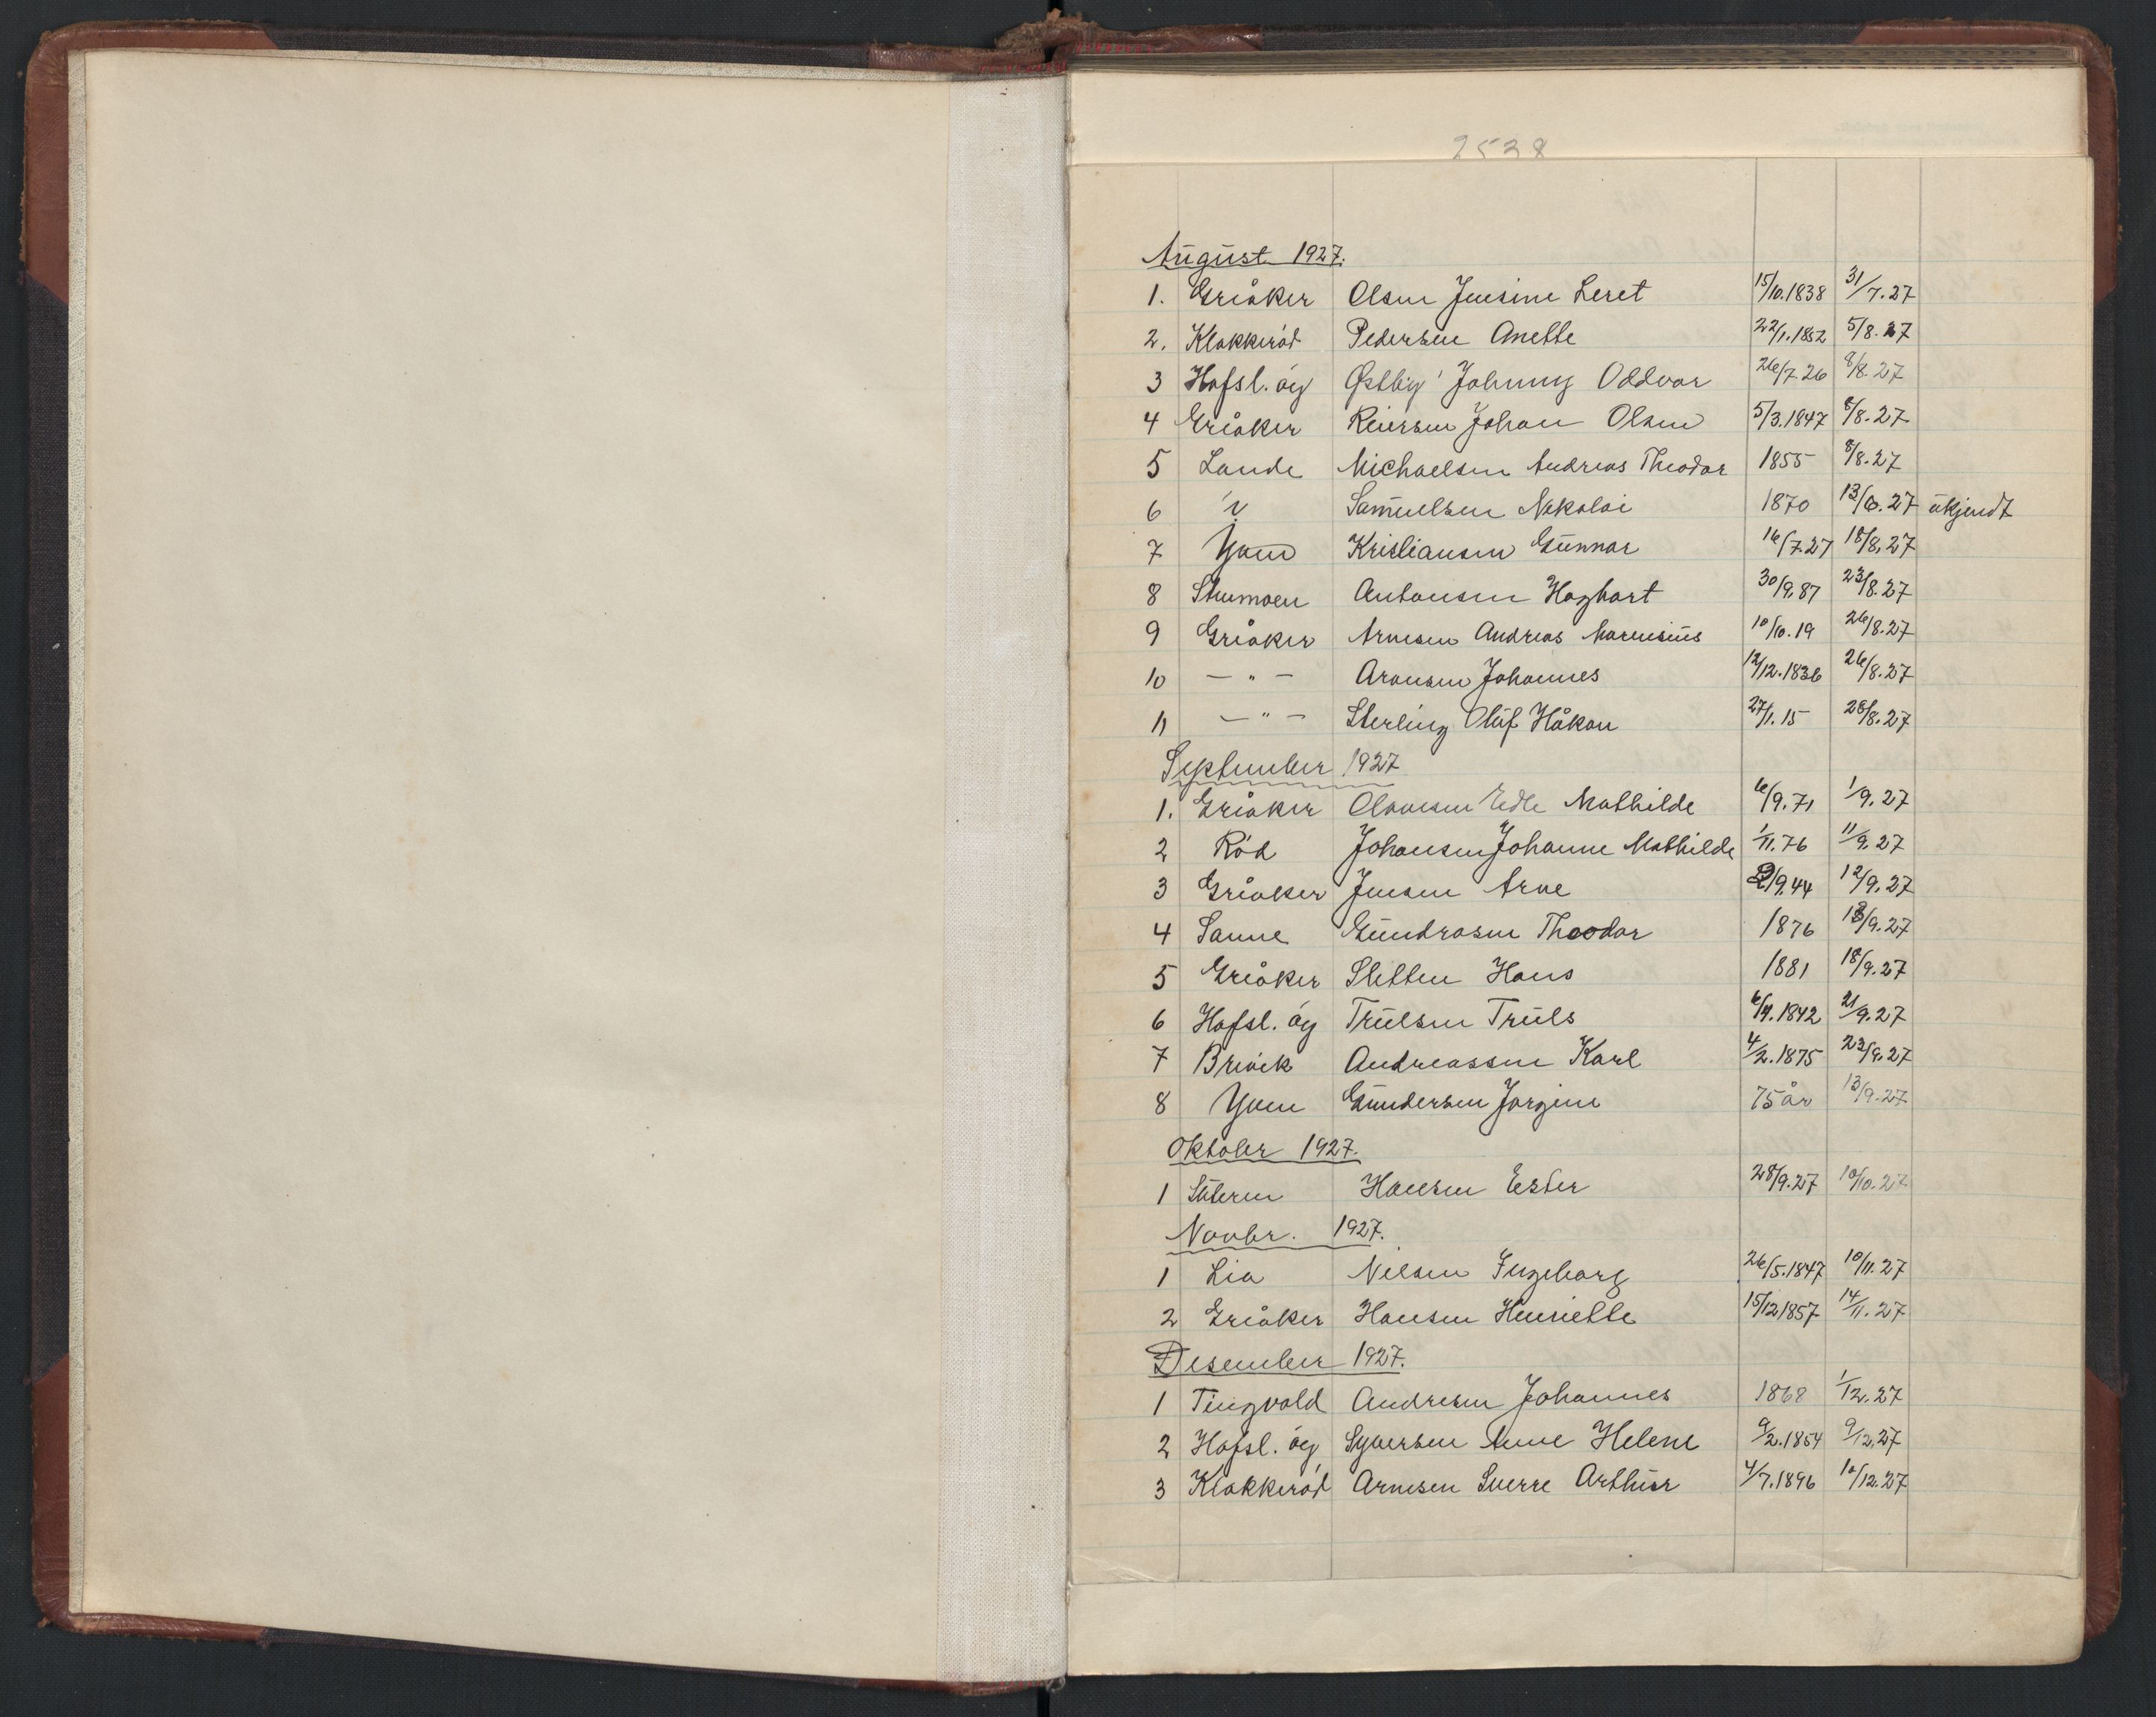 2538
August 1927.
1. Grååker Olsen Jensine Leret 15/10.1838 31/7.27
2. Klokkeröd Pedersen Anette 22/1.1852 5/8.27
3 Hafsl. øy Østby Johnny Oddvar 26/7.26 8/8.27
4 Grååker Reiersen Johan Olsen 5/3.1847 8/8.27
5 Lande Michaelsen Andreas Theodor 1855 8/8.27
6 ? Samuelsen Nikolai 1870 13/6.27 ukjendt
7 Yven Kristiansen Gunnar 16/7.27 18/8.27
8 Stumoen Antonsen Hagbart 30/9.87 23/8.27
9 Grååker Arnesen Andreas Marensius 10/10.19 26/8.27
10 — " — Aronsen Johannes 12/12.1836 26/8.27
11 — " — Sterling Oluf Håkon 27/1.15 28/8.27
September 1927
1. Grååker Olavesen Edle Mathilde 6/9.71 1/9.27
2 Röd Johansen Johanne Mathilde 1/11.76 11/9.27
3 Grååker Jensen Arne 2/9.44 12/9.27
4 Sanne Gundrosen Theodor 1876 13/9.27
5 Grååker Sletten Hans 1881 18/9.27
6 Hafsl. øy Trulsen Truls 6/9.1842 21/9.27
7 Brevik Andreassen Karl 4/2.1875 23/9.27
8 Yven Gundersen Jørgine 75 år 13/9.27
Oktober 1927.
1 Hansen Ester 28/9.27 10/10.27
Novbr. 1927.
1 Lia Nilsen Ingeborg 26/5.1847 10/11.27
2 Grååker Hansen Henriette 15/12 1857 14/11.27
Desember 1927.
1 Tingvold Andresen Johannes 1868 1/12.27
2 Hafsl. øy Syversen Anne Helene 9/2.1854 9/12.27
3 Klokkeröd Arnesen Sverre Arthur 4/7.1896 10/12.27